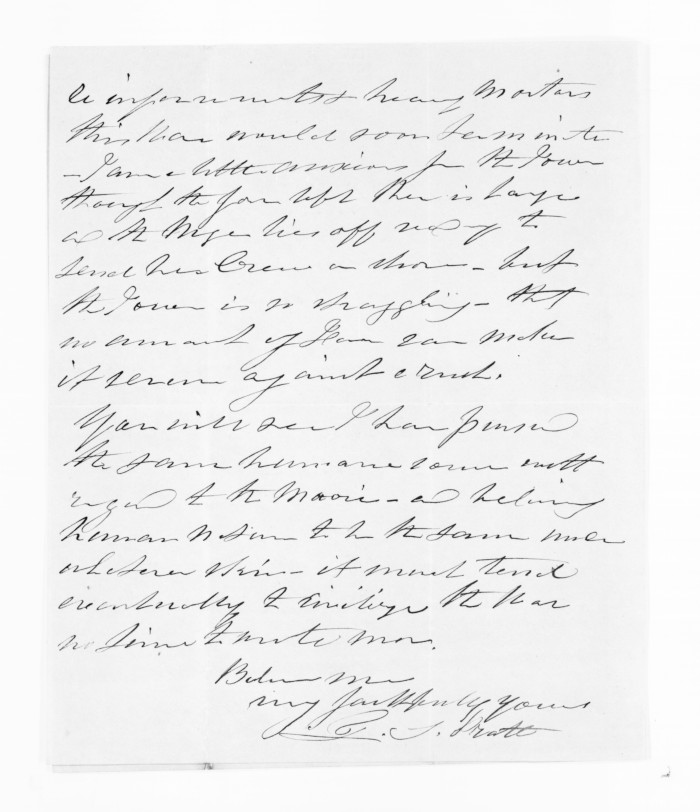 reinforcements & heavy Mortars
this War would soon terminate
- I am a little anxious for the Town
though the force left there is large
and the Niger lies off ready to
send her Crew on shore - but
the Town is so straggling - that
no amount of Force can make
it secure against a rush.
You will see I have pursued
the same humane course with
regard to the Maorie - and believing
human nature to be the same under
whatever skin - it must tend
eventually to Civilize the War
no time to write more.
Believe me
very faithfully yours
C. S. Pratt